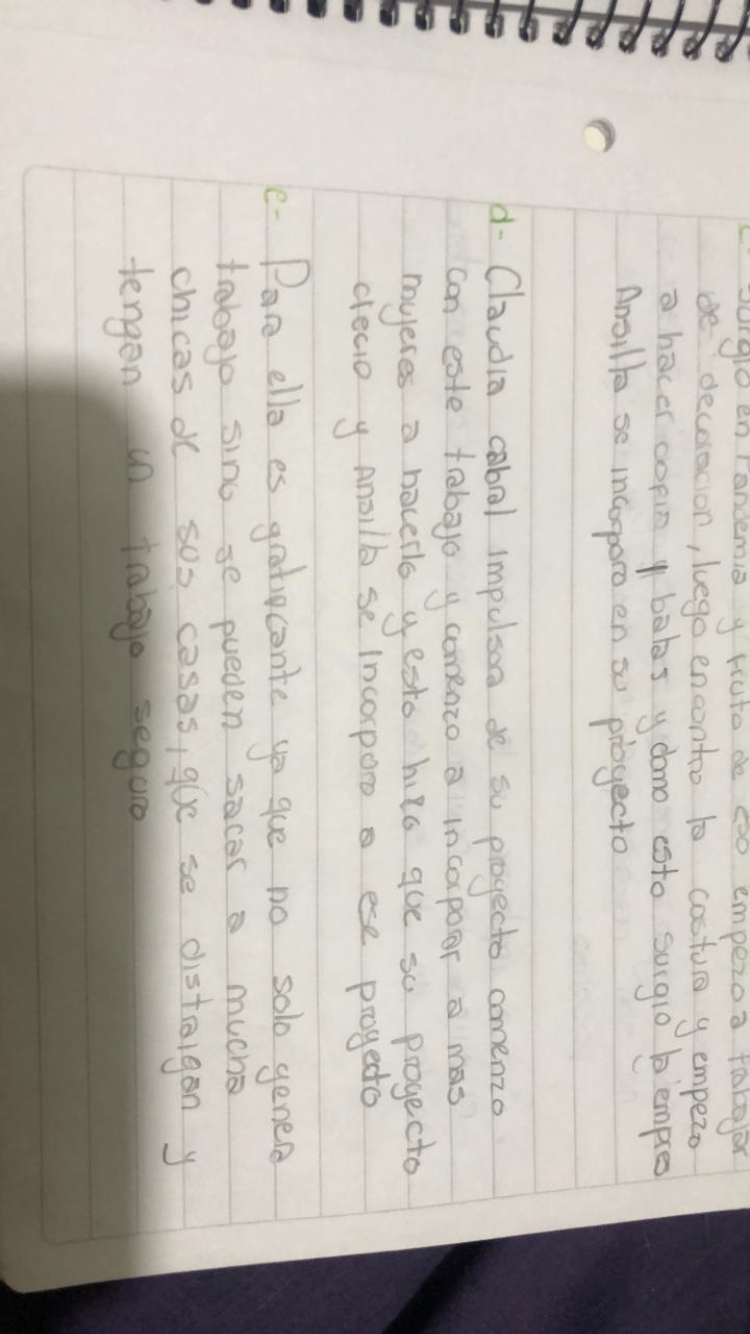 c- Surgio en Pandemia y fruto de eso empezo a trabajar
de decoracion, luego encontro la costura y empezo
a hacer copia y batas y como esto surgio la empre
Ansilta se incorporo en su proyecto
d- Claudia cabral impulsora de su proyecto comenzo
con este trabajo y comenzo a incorporar a mas
mujeres a hacerlo y esto hizo que su proyecto
crecio y Ansilta se incorporo a ese proyecto
e- Para ella es gratificante ya que no solo genera
trabajo sino se pueden sacar a mucha
chicas de sus casas, que se distraigan y
tengan un trabajo seguro